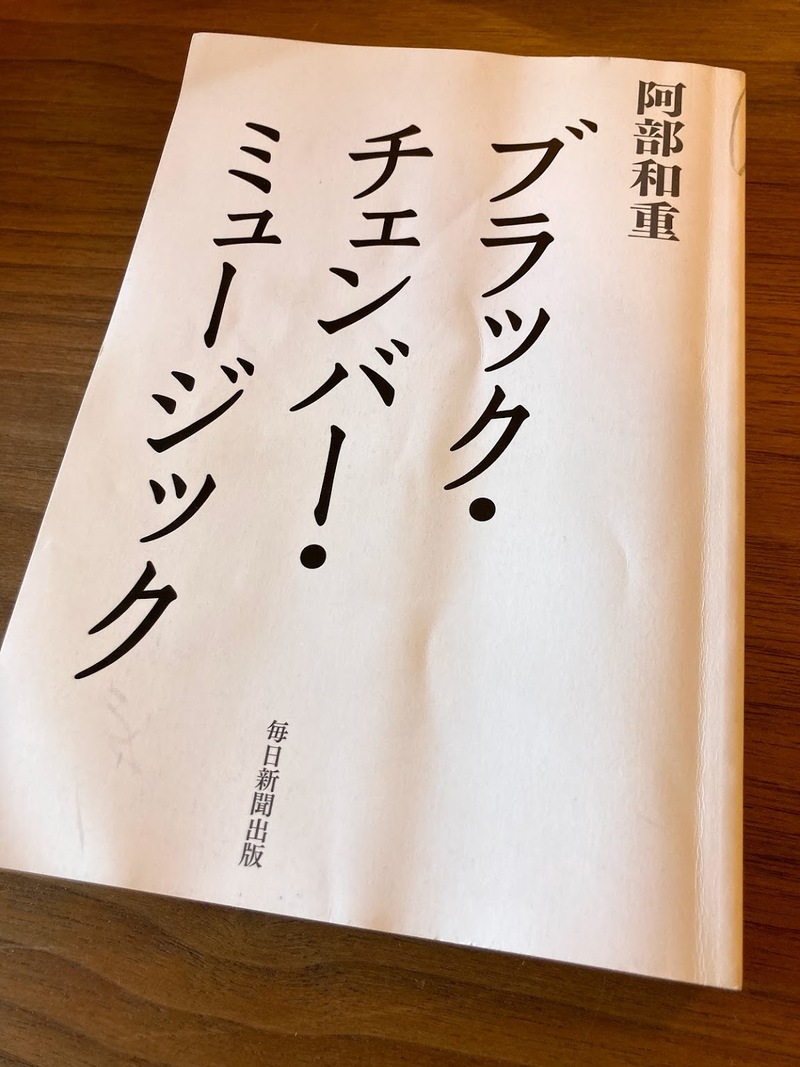 阿部和重
ブラック・
チェンバー・
ミュージック
毎日新聞出版